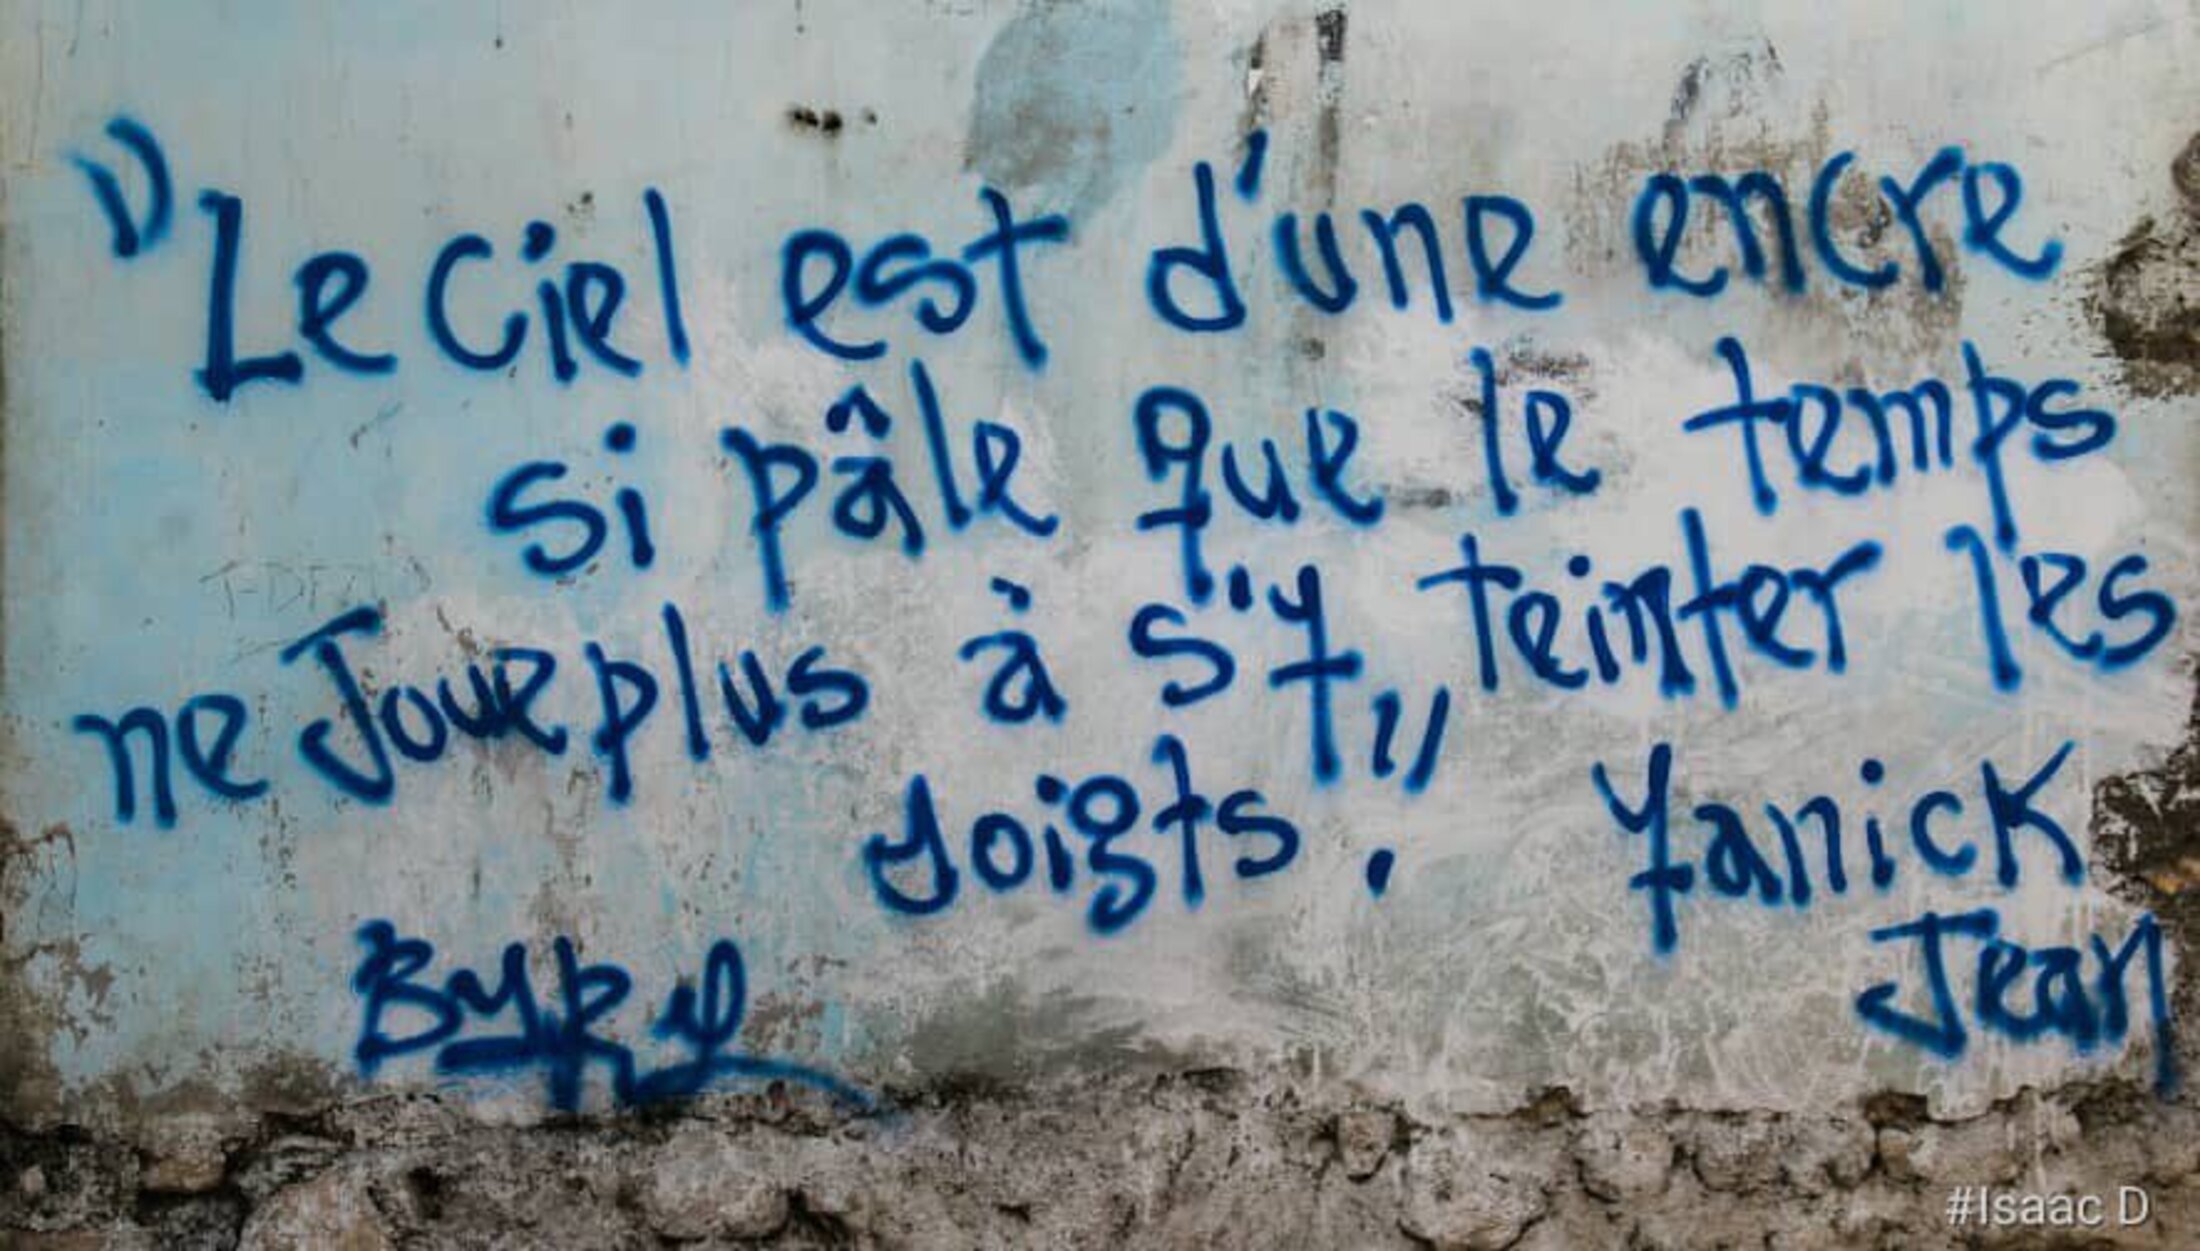 "Le Ciel est d'une encre
si pâle que le temps
ne Joue plus à s'y teinter les
doigts."
Yanick
Jean
#Isaac D